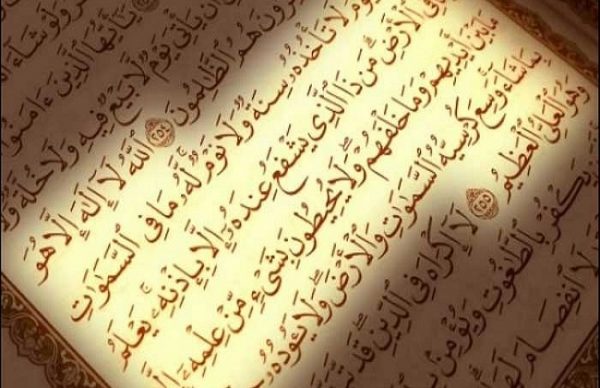 وَلَوْ شَآءَ
يَٰٓأَيُّهَا ٱلَّذِينَ ءَامَنُوٓا۟
أَن يَأْتِىَ يَوْمٌ لَّا بَيْعٌ فِيهِ وَلَا خُلَّةٌ وَلَا
هُمُ ٱلظَّٰلِمُونَ ٢٥٤ ٱللَّهُ لَآ إِلَٰهَ إِلَّا هُوَ
لَا تَأْخُذُهُۥ سِنَةٌ وَلَا نَوْمٌ لَّهُۥ مَا فِى ٱلسَّمَٰوَٰتِ
فِى ٱلْأَرْضِ مَن ذَا ٱلَّذِى يَشْفَعُ عِندَهُۥٓ إِلَّا بِإِذْنِهِۦ يَعْلَمُ
مَا بَيْنَ أَيْدِيهِمْ وَمَا خَلْفَهُمْ وَلَا يُحِيطُونَ بِشَىْءٍ مِّنْ عِلْمِهِۦٓ إِلَّا
بِمَا شَآءَ وَسِعَ كُرْسِيُّهُ ٱلسَّمَٰوَٰتِ وَٱلْأَرْضَ وَلَا يَـُٔودُهُۥ
وَهُوَ ٱلْعَلِىُّ ٱلْعَظِيمُ ٢٥٥ لَآ إِكْرَاهَ فِى ٱلدِّينِ قَد
يَكْفُرْ بِٱلطَّٰغُوتِ وَيُؤْمِنۢ
لَا ٱنفِصَامَ